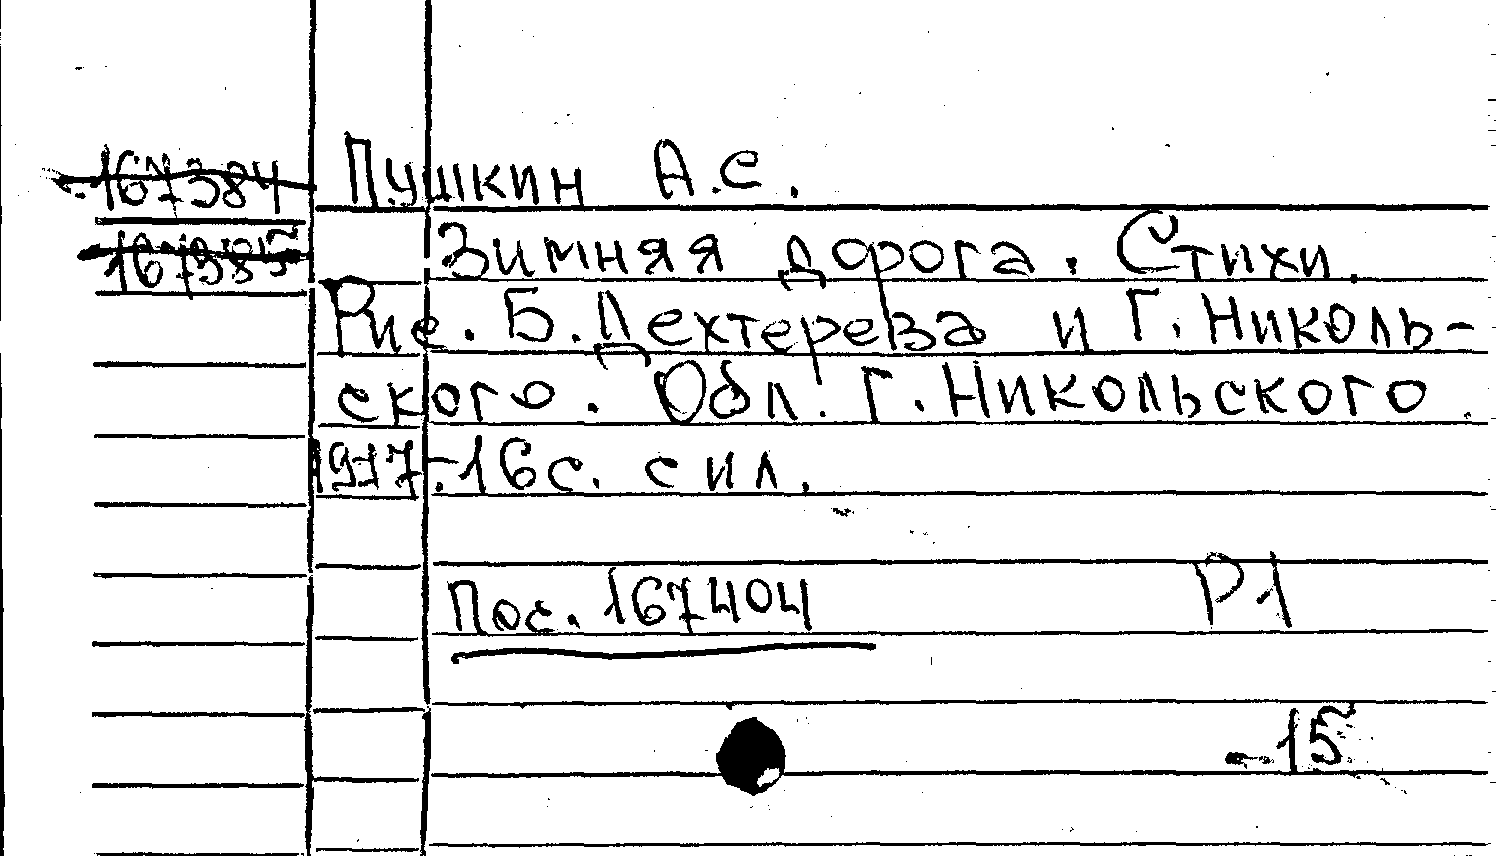 167384 Пушкин А.С.
167385 Зимняя дорога. Стихи.
Рис. Б. Дехтерева и Г. Николь-
ского. Обл. Г. Никольского.
1977.-16с. с ил.
Пос. 167404 Р1
-15